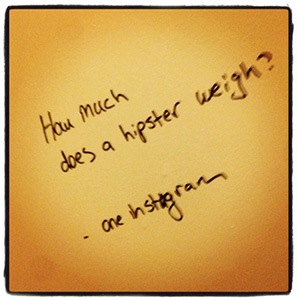 How much
does a hipster weigh?
- one instagram